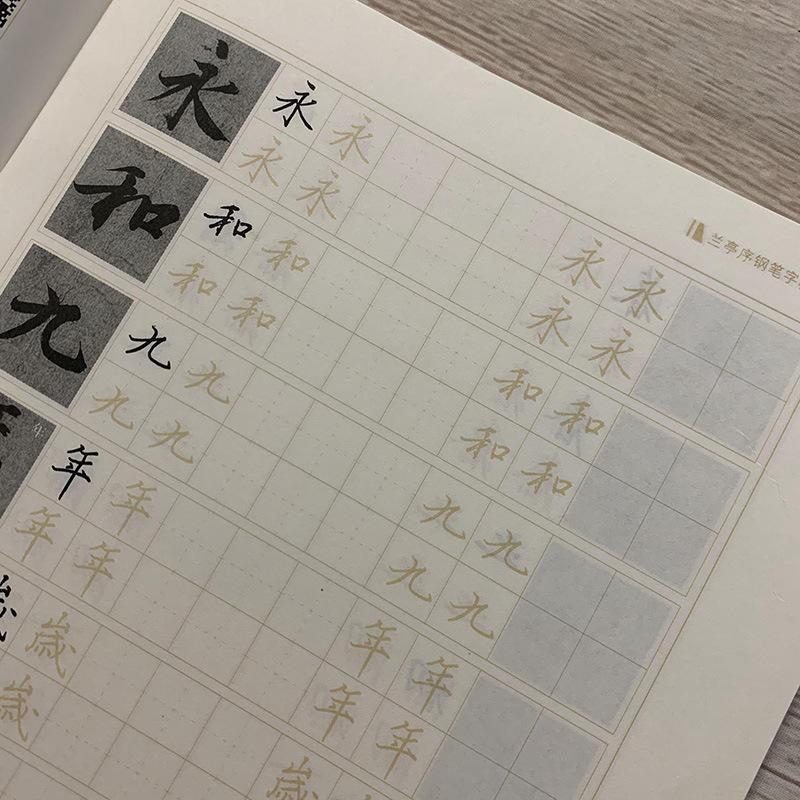 兰亭序钢笔字
永 永 永 永 永
永 永 永 永
和 和 和 和 和
和 和 和 和
九 九 九 九 九
九 九 九 九
年 年 年 年 年
年 年 年 年
歳 歳
歳